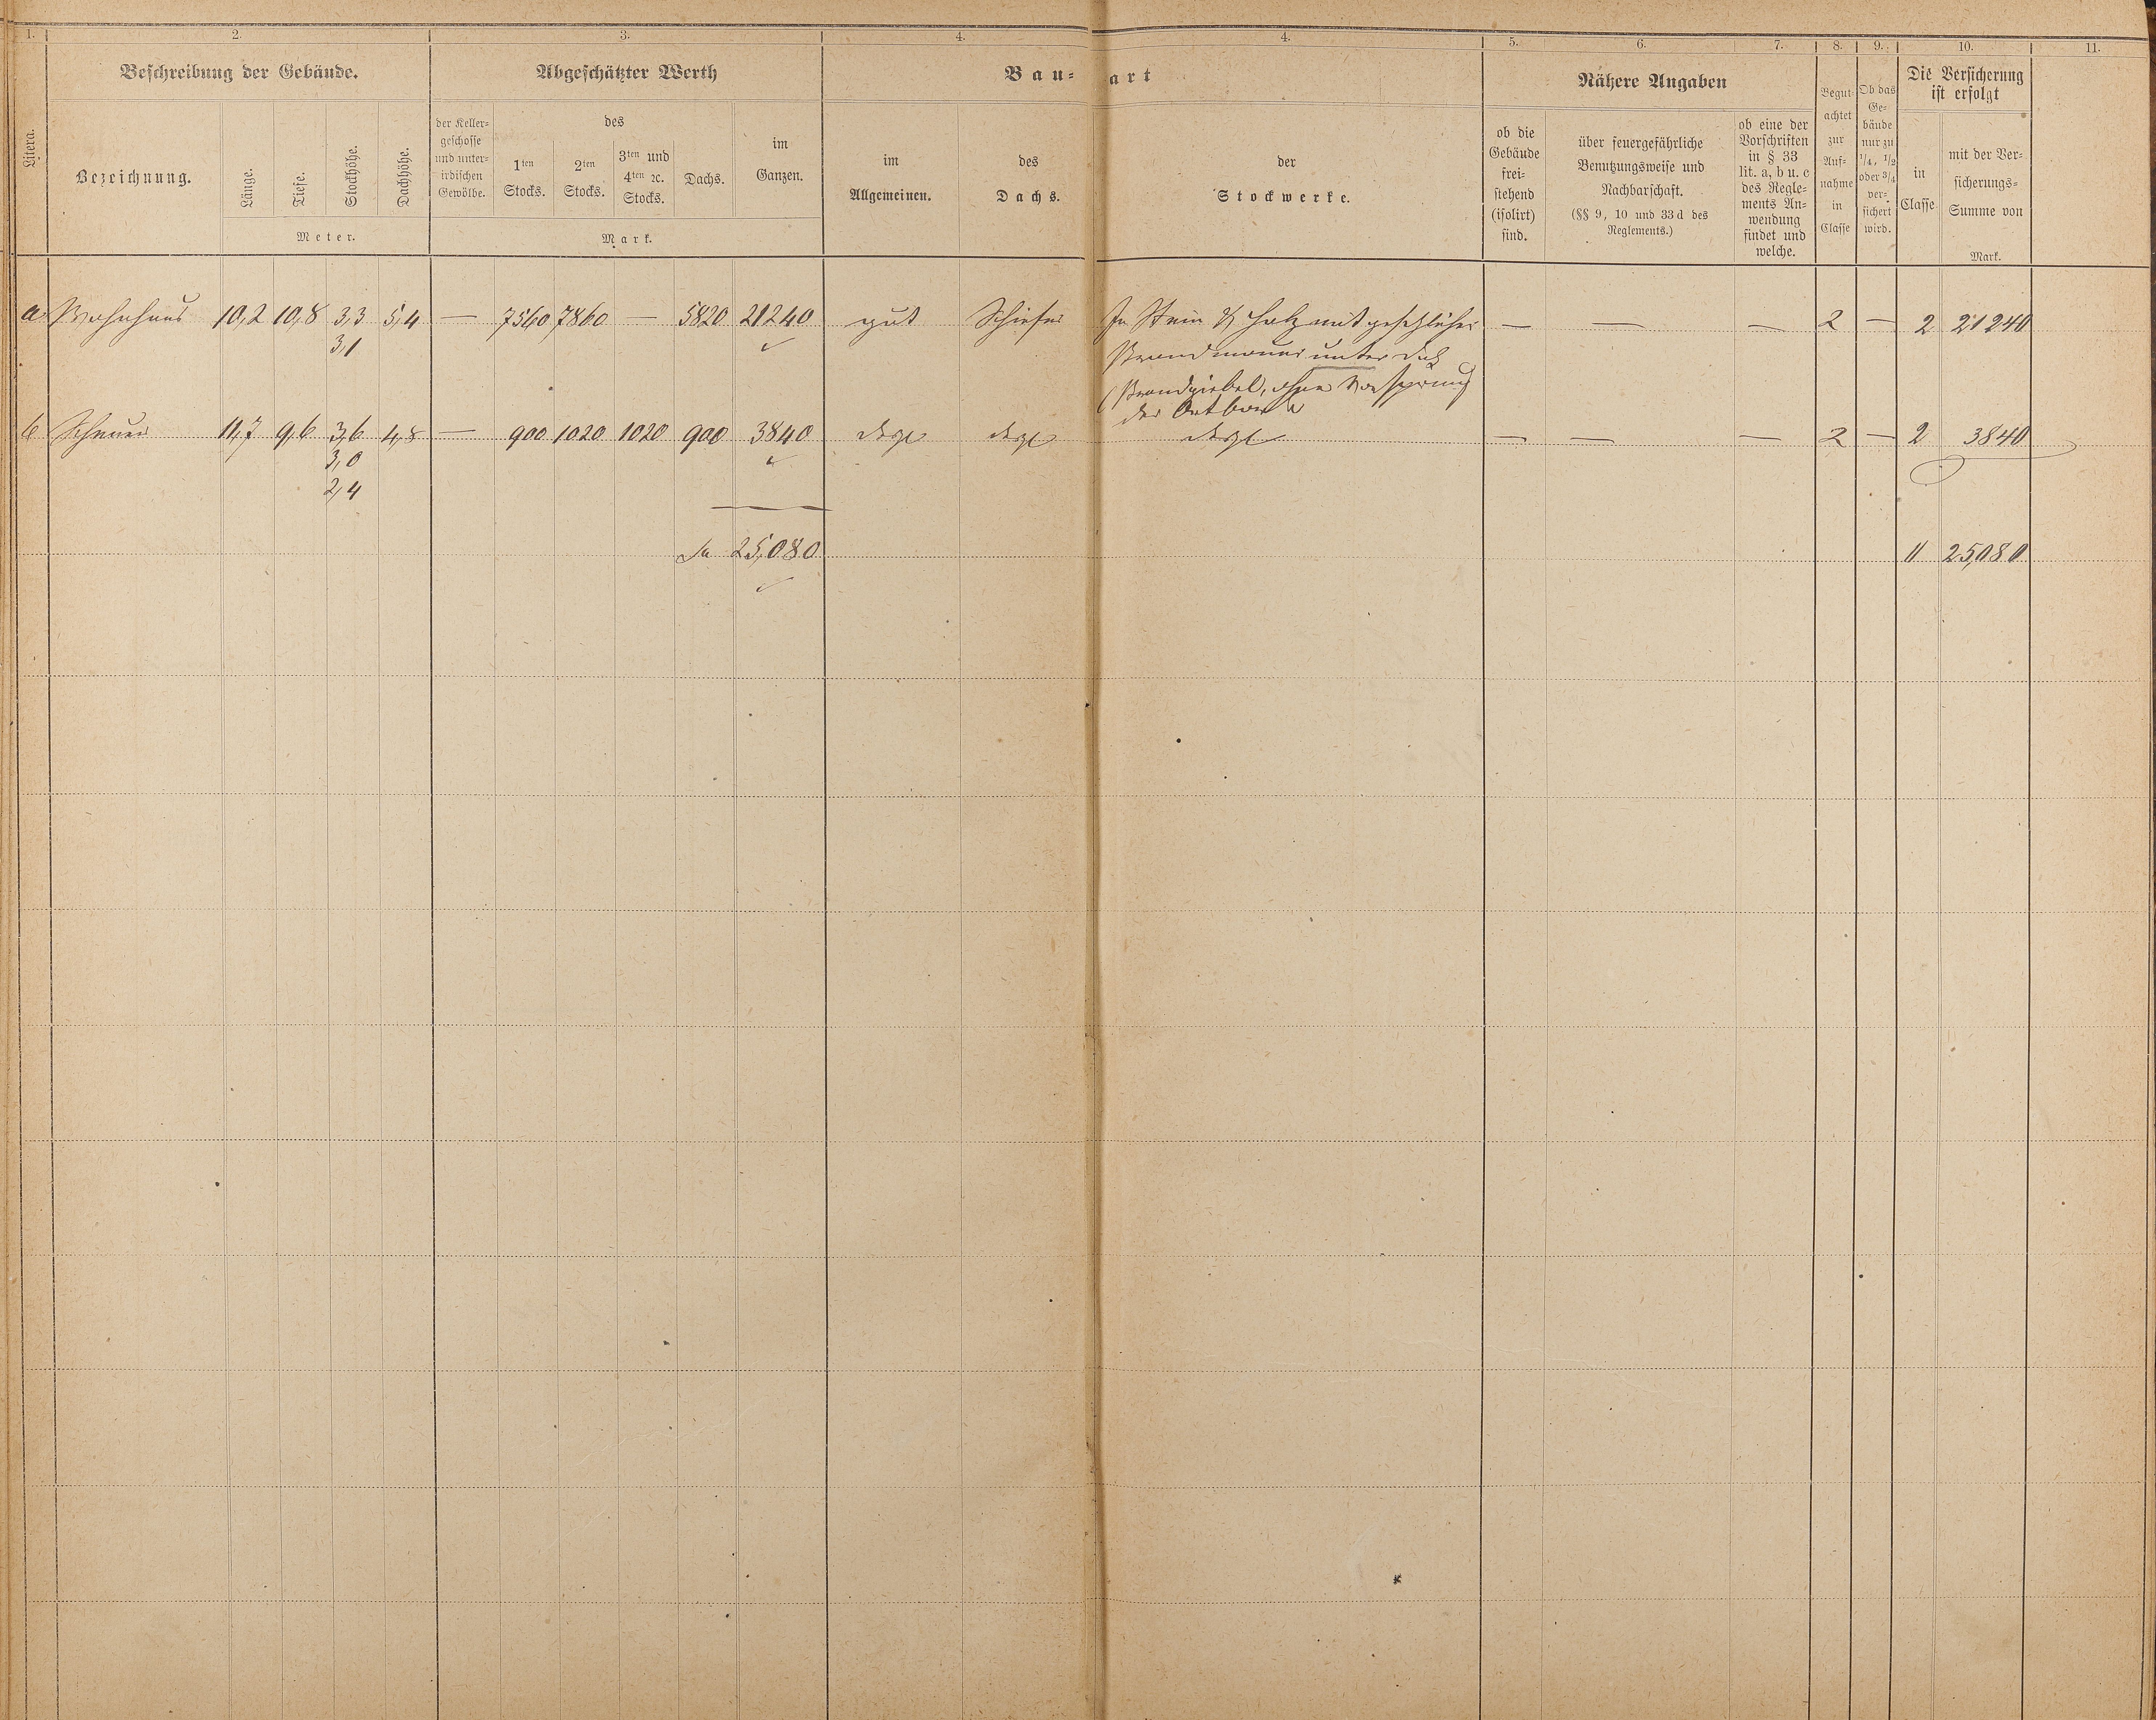 1. 2. 3. 4. 4. 5. 6. 7. 8. 9. 10. 11.
Litera.
Beschreibung der Gebäude.
Bezeichnung.
Länge.
Tiefe.
Stockhöhe.
Dachhöhe.
Meter.
Abgeschätzter Werth
der Keller-
geschosse
und unter-
irdischen
Gewölbe.
des
1ten
Stocks.
2ten
Stocks.
3ten und
4ten ꝛc.
Stocks.
Dachs.
im
Ganzen.
Mark.
Bau- art
im
Allgemeinen.
des
Dachs.
der
Stockwerke.
Nähere Angaben
ob die
Gebäude
frei-
stehend
(isolirt)
sind.
über feuergefährliche
Benutzungsweise und
Nachbarschaft.
(§§ 9, 10 und 33 d des
Reglements.)
ob eine der
Vorschriften
in § 33
lit. a, b u. c
des Regle-
ments An-
wendung
findet und
welche.
Begut-
achtet
zur
Auf-
nahme
in
Classe
Ob das
Ge-
bäude
nur zu
1/4, 1/2
oder 3/4
ver-
sichert
wird.
Die Versicherung
ist erfolgt
in
Classe
mit der Ver-
sicherungs-
Summe von
Mark.
a Wohnhaus 10,2 10,8 3,3 5,4 — 7560 7860 — 5820 21240 gut Schiefer In Stein & Holz mit gesetzlicher — — — 2 — 2 21240
3,1
Brandmauer unter Dach
(Brandgiebel, ohne Vorsprung
der
b Scheuer 11,7 9,6 3,6 4,8 — 900 1020 1020 900 3840 desgl desgl desgl — — — 2 — 2 3840
3,0
2,4
Sa 25,080 11 25,080